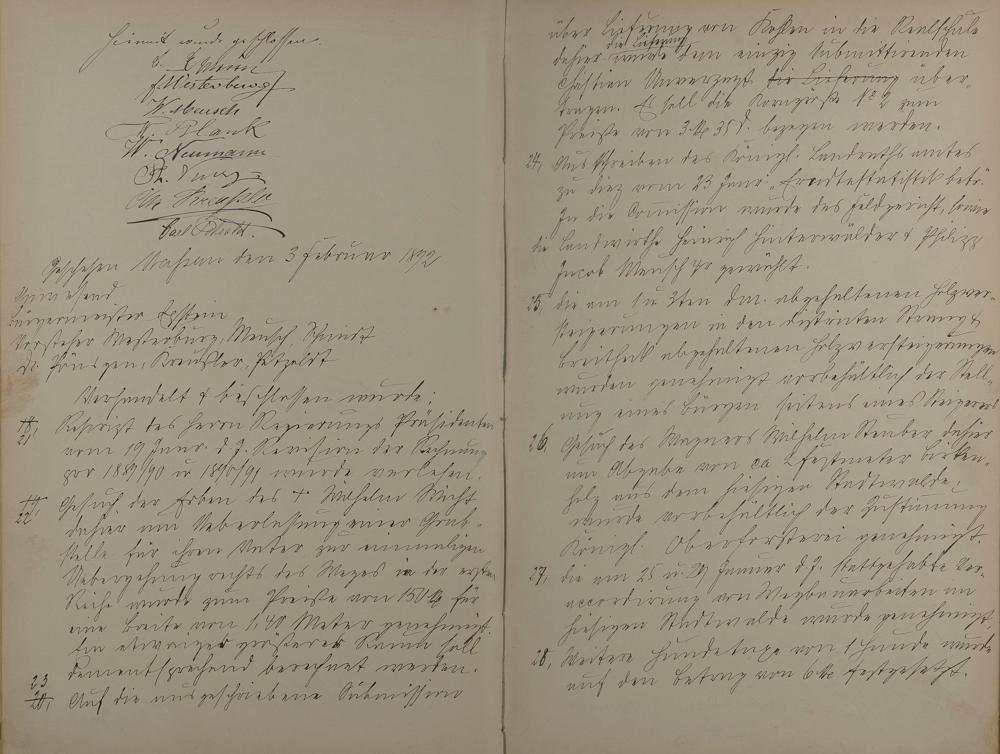 Hiermit wurde geschlossen.
F. Westerburg
W. Mensch
W. Blank
W. Neumann
Otto Kreußler
Carl Petzoldt.
Geschehen Nassau den 3 Februar 1892
Anwesend
Bürgermeister Epstein
Vorsteher Westerburg, Mensch, Schmidt
Dr. Pönsgen, Kreußler, Petzoldt
Verhandelt & beschlossen wurde:
21, Rescript des Herrn Regierungs Präsidenten
vom 19 Janr. d. J. Revision der Rechnung
pro 1889/90 u 1890/91 wurde verlesen.
22, Gesuch der Erben des † Wilhelm
dahier um Ueberlassung einer Grab-
stelle für ihren Vater zur einmaligen
Uebergehung rechts des Weges in der ersten
Reihe wurde zum Preiße von 150 M für
eine Breite von 1,40 Meter genehmigt.
Ein etwaiger größerer Raum soll
dementsprechend berechnet werden.
23 Auf die ausgeschriebene Submission
über Lieferung von Kohlen in die Realschule
dahier wurde die Lieferung dem einzig submittirenden
Christian Unverzagt die Lieferung über-
tragen. Es soll die Korngröße No 2 zum
Preiße von 3 M 35 d. bezogen werden.
24, Ausschreiben des Königl. Landrathsamtes
zu Diez vom 23 Janr. Erndtestatistik betr.
In die Commission wurde das Feldgericht, sowie
die Landwirthe Heinrich Hinterwälder & Philipp
Jacob Mensch gewählt.
25, Die am 1 u 3ten dM. abgehaltenen Holzver-
steigerungen in den Distrikten &
abgehaltenen Holzversteigerungen
wurden genehmigt vorbehältlich der Stell-
ung eines Bürgen seitens eines Steigerers
26, Gesuch des Wagners Wilhelm Steuber dahier
um Abgabe von ca 2 Festmeter birken-
holz aus dem hiesigen Stadtwalde,
wurde vorbehältlich der Zustimmung
Königl. Oberförsterei genehmigt.
27, Die am 25 u. 29 Januar d. J. stattgehabte Ver-
accordirung von Wegbauarbeiten im
hiesigen Stadtwalde wurde genehmigt.
28, Weitere Hundetaxe von 1 Hunde wurde
auf den Betrag von 6 M festgesetzt.